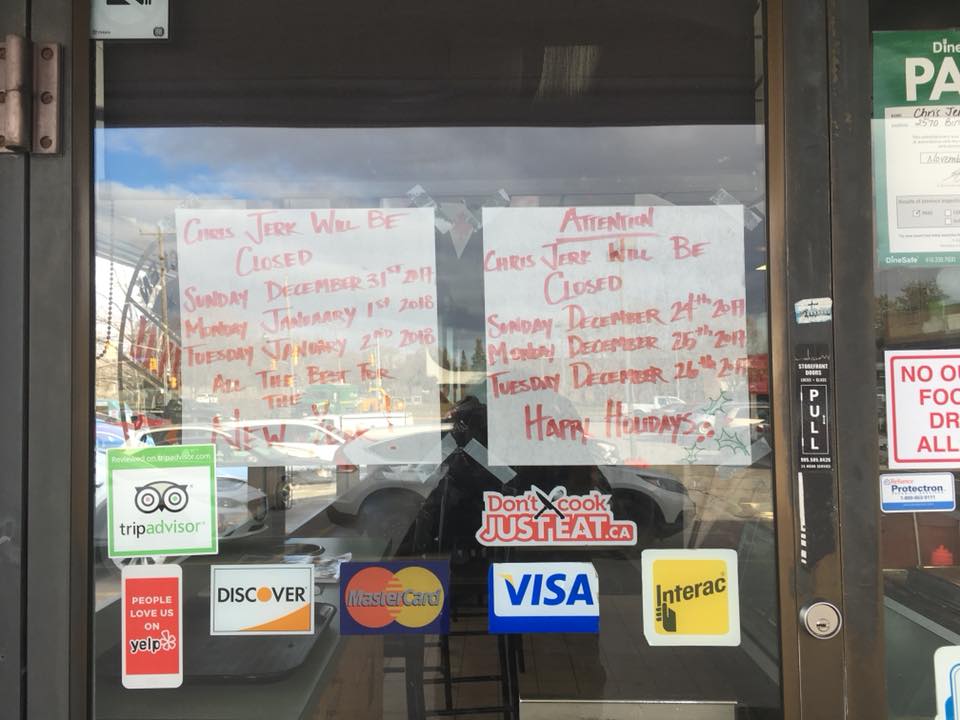 CHRIS JERK WILL BE
CLOSED
SUNDAY DECEMBER 31ST 2017
MONDAY JANUARY 1ST 2018
TUESDAY JANUARY 2ND 2018
ALL THE BEST FOR
THE
NEW
ATTENTION
CHRIS JERK WILL BE
CLOSED
SUNDAY DECEMBER 24th 2017
MONDAY DECEMBER 25th 2017
TUESDAY DECEMBER 26th 2017
HAPPY HOLIDAYS
Reviewed on tripadvisor.com
tripadvisor
Don't cook
JUST EAT.CA
PEOPLE
LOVE US
ON
yelp
DISCOVER
MasterCard
VISA
Interac
STOREFRONT
DOORS
PULL
Dine
PA
Chris Je
2570
Novemb
DineSafe
NO OU
FOO
DR
ALL
Reliance
Protectron